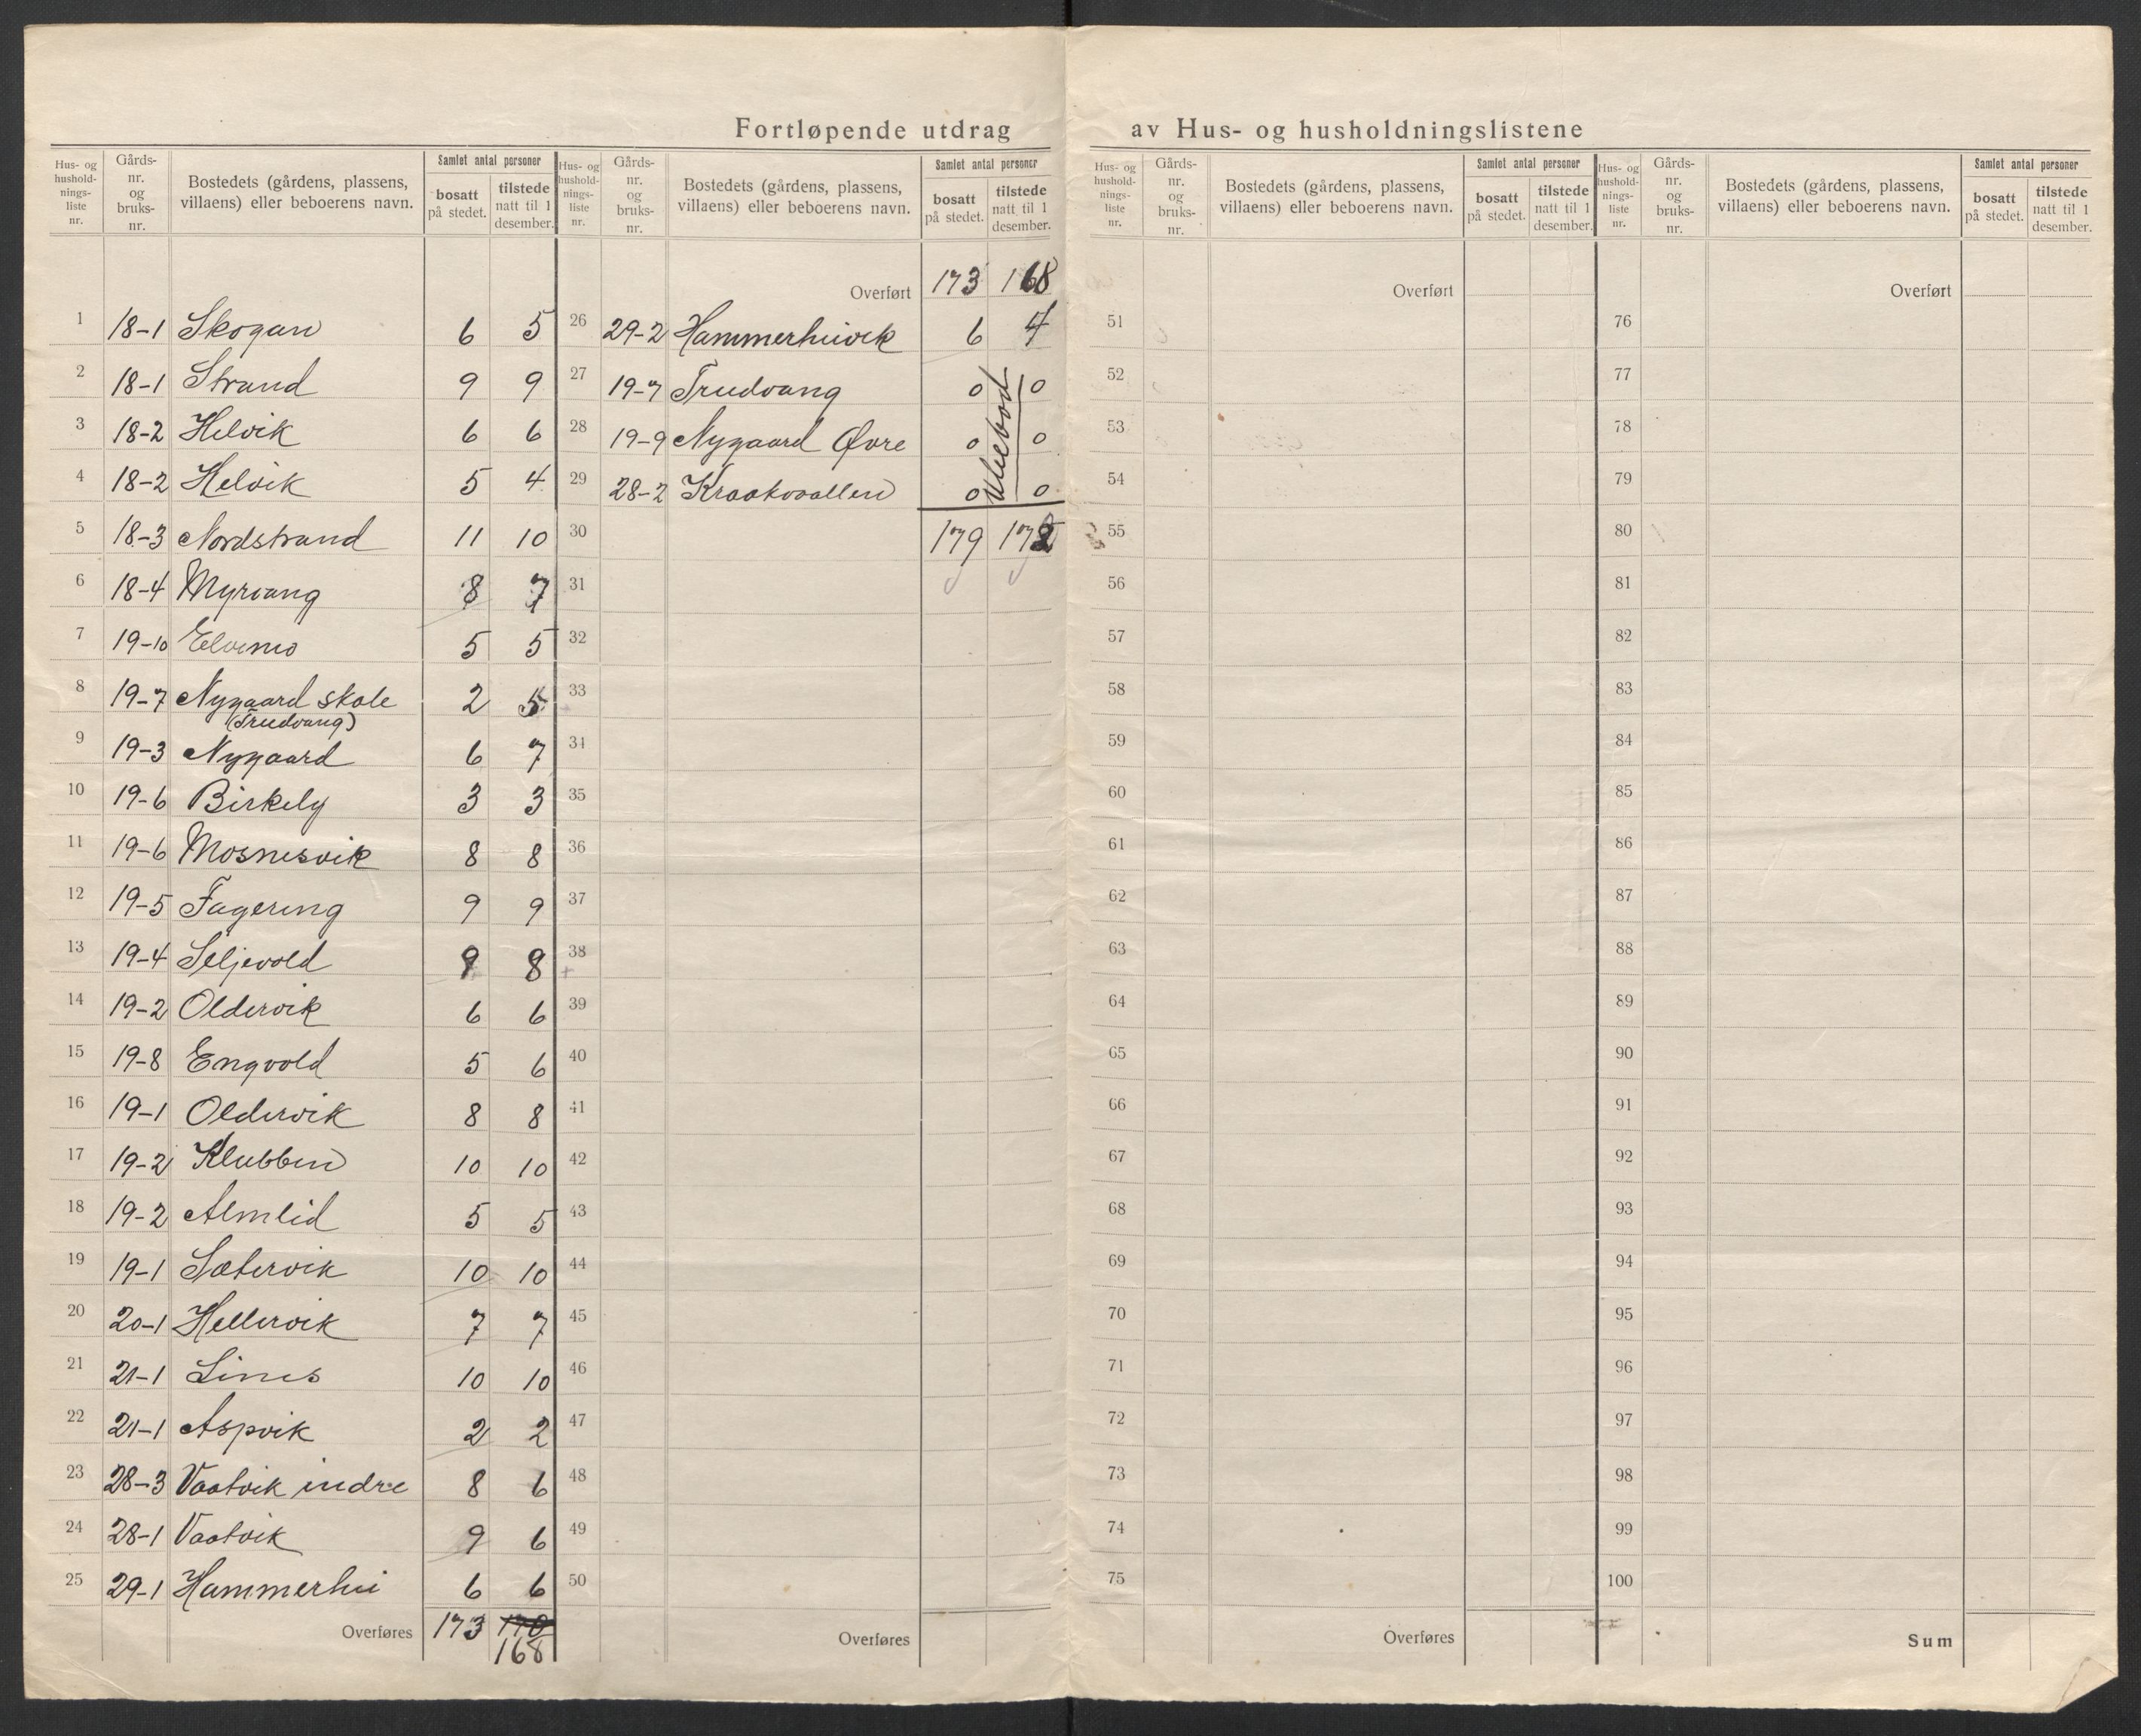 Fortløpende utdrag av Hus- og husholdningslistene
Hus- og hushold-nings-liste nr. Gårds-nr. og bruks-nr. Bostedets (gårdens, plassens, villaens) eller beboerens navn. Samlet antal personer bosatt på stedet. tilstede natt til 1 desember.
1 18-1 Skogan 6 5
2 18-1 Strand 9 9
3 18-2 Helvik 6 6
4 18-2 Helvik 5 4
5 18-3 Nordstrand 11 10
6 18-4 Myrvang 8 7
7 19-10 Elvemo 5 5
8 19-7 Nygaard skole 2 5
(Trudvang)
9 19-3 Nygaard 6 7
10 19-6 Birkely 3 3
11 19-6 Mosnesvik 8 8
12 19-5 Fagereng 9 9
13 19-4 Seljevold 9 8
14 19-2 Oldervik 6 6
15 19-8 Engvold 5 6
16 19-1 Oldervik 8 8
17 19-2 Klubben 10 10
18 19-2 Almlid 5 5
19 19-1 Sætervik 10 10
20 20-1 Hellervik 7 7
21 21-1 Lines 10 10
22 21-1 Aspvik 2 2
23 28-3 Vaatvik indre 8 6
24 28-1 Vaatvik 9 6
25 29-1 Hammerhei 6 6
Overføres 173 170
168
Hus- og hushold-nings-liste nr. Gårds-nr. og bruks-nr. Bostedets (gårdens, plassens, villaens) eller beboerens navn. Samlet antal personer bosatt på stedet. tilstede natt til 1 desember.
Overført 173 168
26 29-2 Hammerheivik 6 4
27 19-7 Trudvang 0 0
28 19-9 Nygaard Øvre 0 0
29 28-2 Kraakvaallen 0 0
Ubebod
30 179 172
31
32
33
34
35
36
37
38
39
40
41
42
43
44
45
46
47
48
49
50
Overføres
Hus- og hushold-nings-liste nr. Gårds-nr. og bruks-nr. Bostedets (gårdens, plassens, villaens) eller beboerens navn. Samlet antal personer bosatt på stedet. tilstede natt til 1 desember.
Overført
51
52
53
54
55
56
57
58
59
60
61
62
63
64
65
66
67
68
69
70
71
72
73
74
75
Overføres
Hus- og hushold-nings-liste nr. Gårds-nr. og bruks-nr. Bostedets (gårdens, plassens, villaens) eller beboerens navn. Samlet antal personer bosatt på stedet. tilstede natt til 1 desember.
Overført
76
77
78
79
80
81
82
83
84
85
86
87
88
89
90
91
92
93
94
95
96
97
98
99
100
Sum